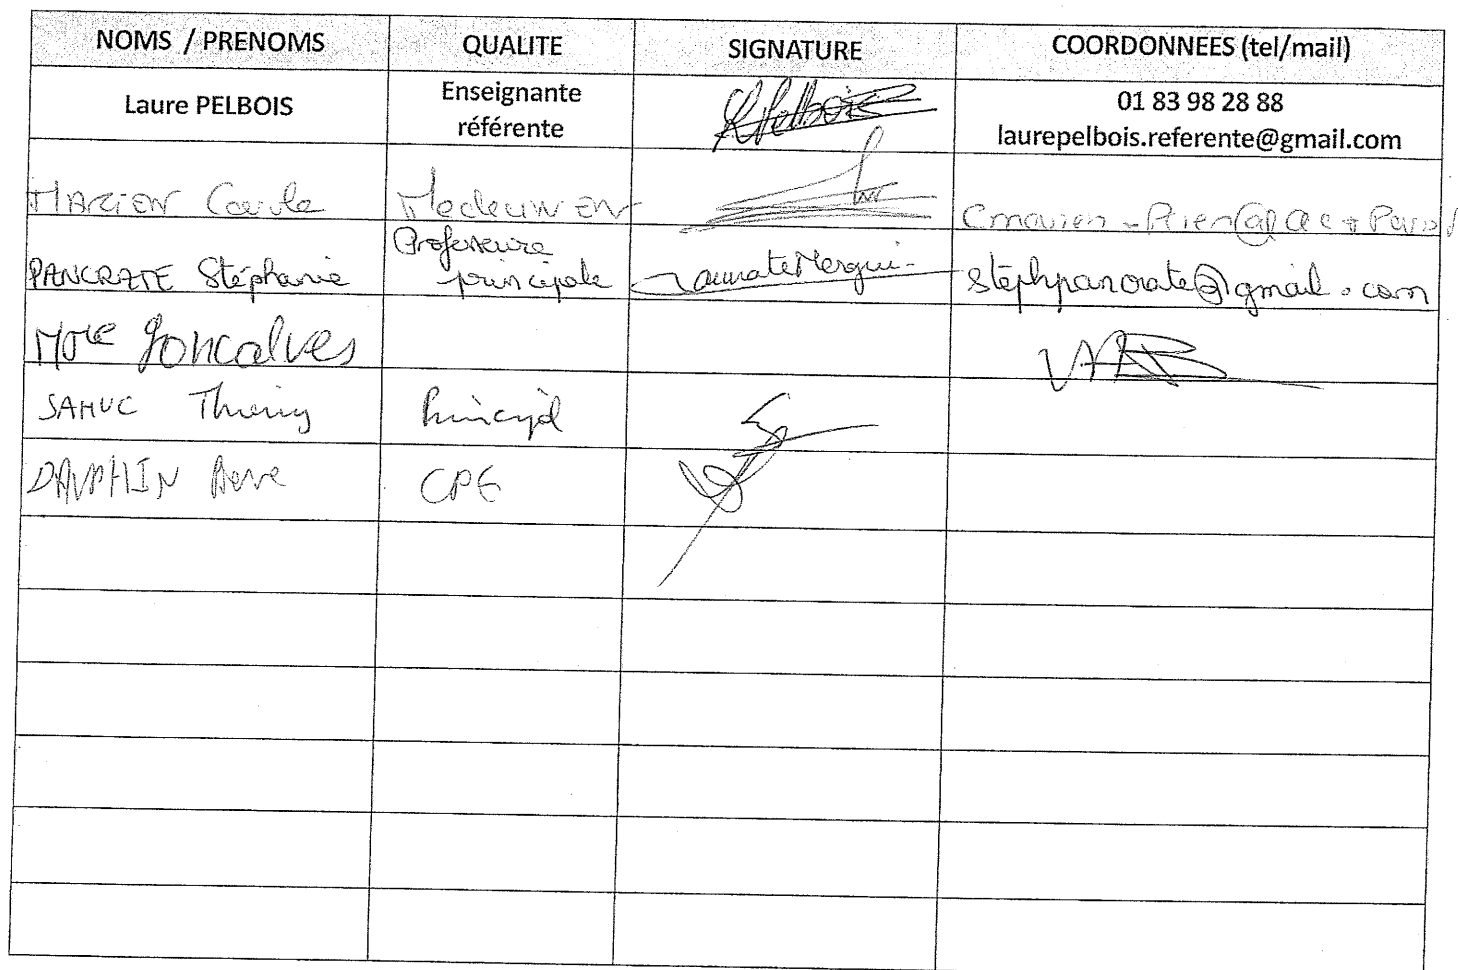 NOMS / PRENOMS QUALITE SIGNATURE COORDONNEES (tel/mail)
Laure PELBOIS Enseignante référente LPelbois 01 83 98 28 88
laurepelbois.referente@gmail.com
MARION
PANCRATE Stéphanie Professeure principale stephpancrate@gmail.com
Mme Goncalves
SAMUC Thierry Principal
DAUPHIN CPE